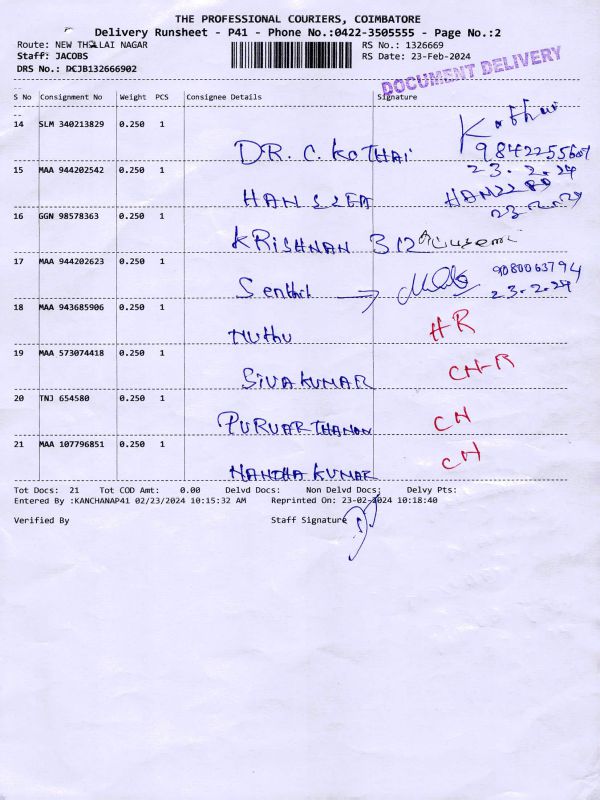 THE PROFESSIONAL COURIERS, COIMBATORE
Delivery Runsheet - P41 - Phone No.:0422-3505555 - Page No.:2
Route: NEW THILLAI NAGAR RS No.: 1326669
Staff: JACOBS RS Date: 23-Feb-2024
DRS No.: DCJB132666902
DOCUMENT DELIVERY
S No Consignment No Weight PCS Consignee Details Signature
14 SLM 340213829 0.250 1
DR. C. KOTHAI Kothai
9842255607
23.2.24
15 MAA 944202542 0.250 1
23.2.24
16 GGN 98578363 0.250 1
KRISHNAN 312
17 MAA 944202623 0.250 1
Senthil 9080063794
23.2.24
18 MAA 943685906 0.250 1
Muthu HR
19 MAA 573074418 0.250 1
SIVAKUMAR CN-R
20 TNJ 654580 0.250 1
CN
21 MAA 107796851 0.250 1
NANTHA KUMAR CN
Tot Docs: 21 Tot COD Amt: 0.00 Delvd Docs: Non Delvd Docs: Delvy Pts:
Entered By :KANCHANAP41 02/23/2024 10:15:32 AM Reprinted On: 23-02-2024 10:18:40
Verified By Staff Signature